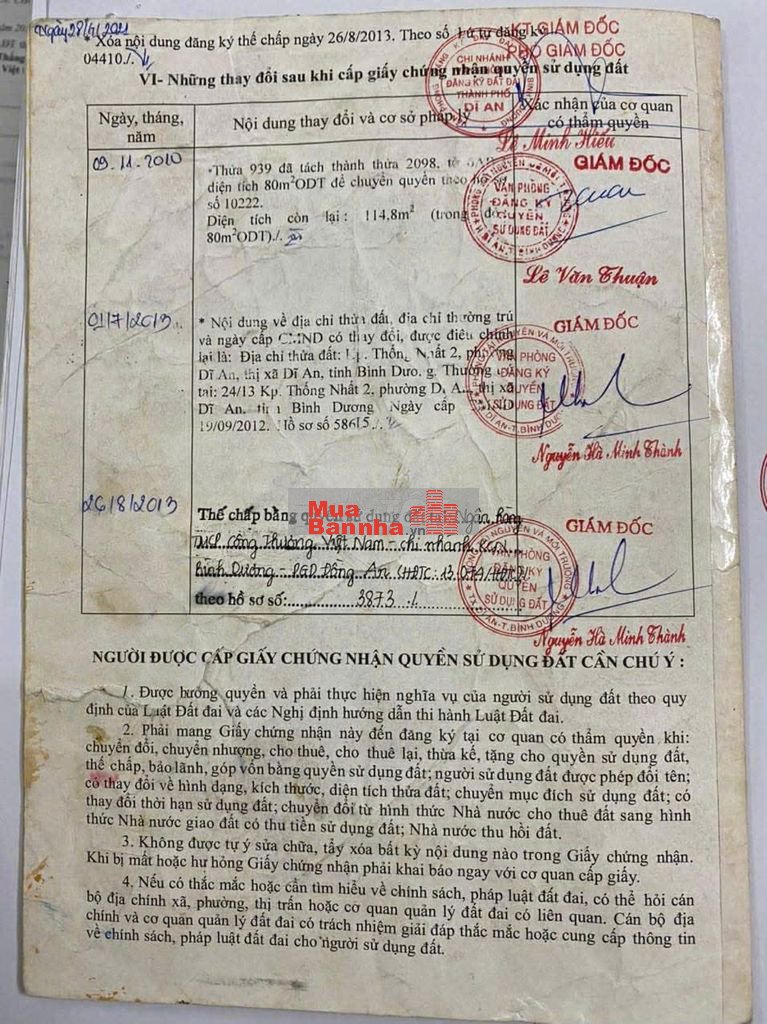 Ngày 28/4/2021
* Xóa nội dung đăng ký thế chấp ngày 26/8/2013. Theo số thứ tự đăng ký
04410./.
KT GIÁM ĐỐC
PHÓ GIÁM ĐỐC
CHI NHÁNH
ĐĂNG KÝ ĐẤT ĐAI
THÀNH PHỐ
DĨ AN
Lê Minh Hiếu
VI- Những thay đổi sau khi cấp giấy chứng nhận quyền sử dụng đất
Ngày, tháng,
năm
Nội dung thay đổi và cơ sở pháp lý
Xác nhận của cơ quan
có thẩm quyền
09.11.2010
*Thửa 939 đã tách thành thửa 2098, tờ
diện tích 80m²ODT để chuyển quyền theo
số 10222.
Diện tích còn lại : 114,8m² (trong đó
80m²ODT)./.
GIÁM ĐỐC
VĂN PHÒNG
ĐĂNG KÝ
QUYỀN
SỬ DỤNG ĐẤT
Lê Văn Thuận
01/7/2013
* Nội dung về địa chỉ thửa đất, địa chỉ thường trú
và ngày cấp CMND có thay đổi, được điều chỉnh
lại là: Địa chỉ thửa đất: Kp. Thống Nhất 2, phường
Dĩ An, thị xã Dĩ An, tỉnh Bình Dương. Thường
tại: 24/13 Kp. Thống Nhất 2, phường Dĩ An, thị xã
Dĩ An, tỉnh Bình Dương Ngày cấp CMND
19/09/2012. Hồ sơ số 58615./.
GIÁM ĐỐC
VĂN PHÒNG
ĐĂNG KÝ
QUYỀN
SỬ DỤNG ĐẤT
TX.DĨ AN-T.BÌNH DƯƠNG
Nguyễn Hà Minh Thành
26/8/2013
Thế chấp bằng quyền sử dụng đất tại Ngân hàng
TMCP Công Thương Việt Nam - chi nhánh KCN
Bình Dương - PGD Đông An
theo hồ sơ số: 3873 ./.
Mua
Bannha.vn
GIÁM ĐỐC
VĂN PHÒNG
ĐĂNG KÝ
QUYỀN
SỬ DỤNG ĐẤT
TX.DĨ AN-T.BÌNH DƯƠNG
Nguyễn Hà Minh Thành
NGƯỜI ĐƯỢC CẤP GIẤY CHỨNG NHẬN QUYỀN SỬ DỤNG ĐẤT CẦN CHÚ Ý :
1. Được hưởng quyền và phải thực hiện nghĩa vụ của người sử dụng đất theo quy
định của Luật Đất đai và các Nghị định hướng dẫn thi hành Luật Đất đai.
2. Phải mang Giấy chứng nhận này đến đăng ký tại cơ quan có thẩm quyền khi:
chuyển đổi, chuyển nhượng, cho thuê, cho thuê lại, thừa kế, tặng cho quyền sử dụng đất,
thế chấp, bảo lãnh, góp vốn bằng quyền sử dụng đất; người sử dụng đất được phép đổi tên;
có thay đổi về hình dạng, kích thước, diện tích thửa đất; chuyển mục đích sử dụng đất; có
thay đổi thời hạn sử dụng đất; chuyển đổi từ hình thức Nhà nước cho thuê đất sang hình
thức Nhà nước giao đất có thu tiền sử dụng đất; Nhà nước thu hồi đất.
3. Không được tự ý sửa chữa, tẩy xóa bất kỳ nội dung nào trong Giấy chứng nhận.
Khi bị mất hoặc hư hỏng Giấy chứng nhận phải khai báo ngay với cơ quan cấp giấy.
4. Nếu có thắc mắc hoặc cần tìm hiểu về chính sách, pháp luật đất đai, có thể hỏi cán
bộ địa chính xã, phường, thị trấn hoặc cơ quan quản lý đất đai có liên quan. Cán bộ địa
chính và cơ quan quản lý đất đai có trách nhiệm giải đáp thắc mắc hoặc cung cấp thông tin
về chính sách, pháp luật đất đai cho người sử dụng đất.